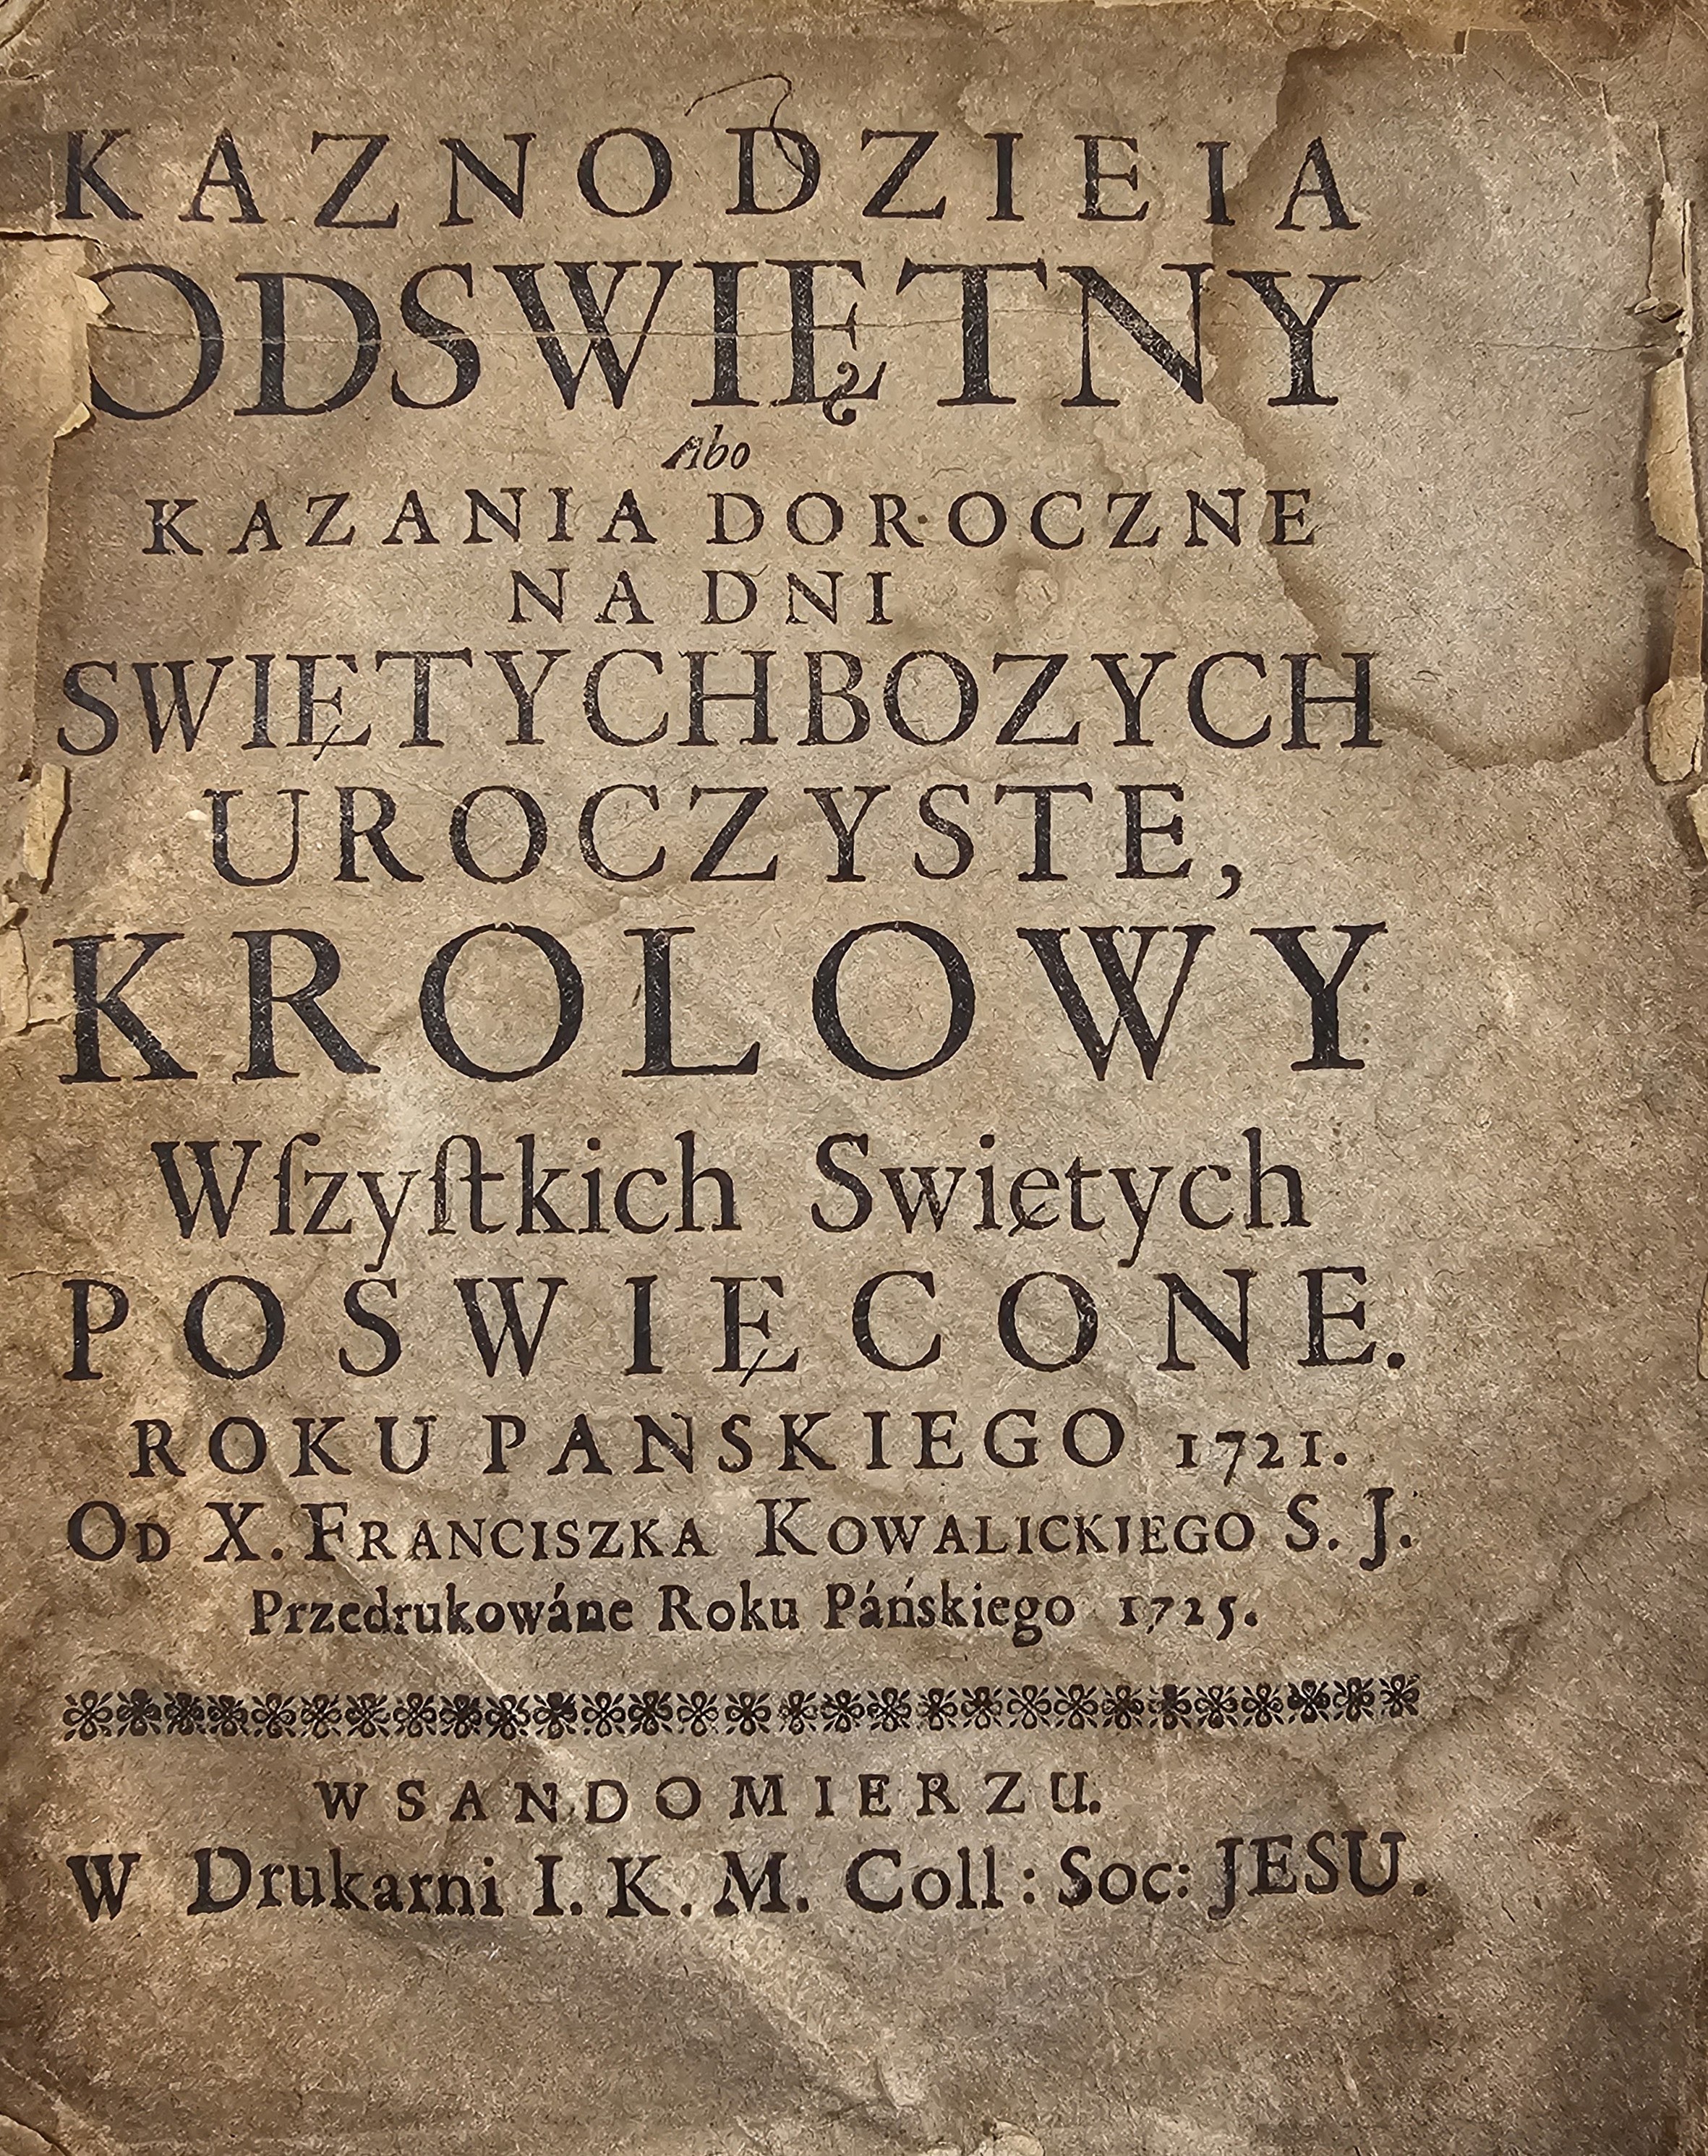 KAZNODZIEIA
ODSWIĘTNY
Abo
KAZANIA DOROCZNE
NA DNI
SWIĘTYCH BOZYCH
UROCZYSTE,
KROLOWY
Wſzyſtkich Swiętych
POSWIĘCONE.
ROKU PANSKIEGO 1721.
OD X. FRANCISZKA KOWALICKIEGO S. J.
Przedrukowáne Roku Páńskiego 1725.
W SANDOMIERZU.
W Drukarni I. K. M. Coll: Soc: JESU.